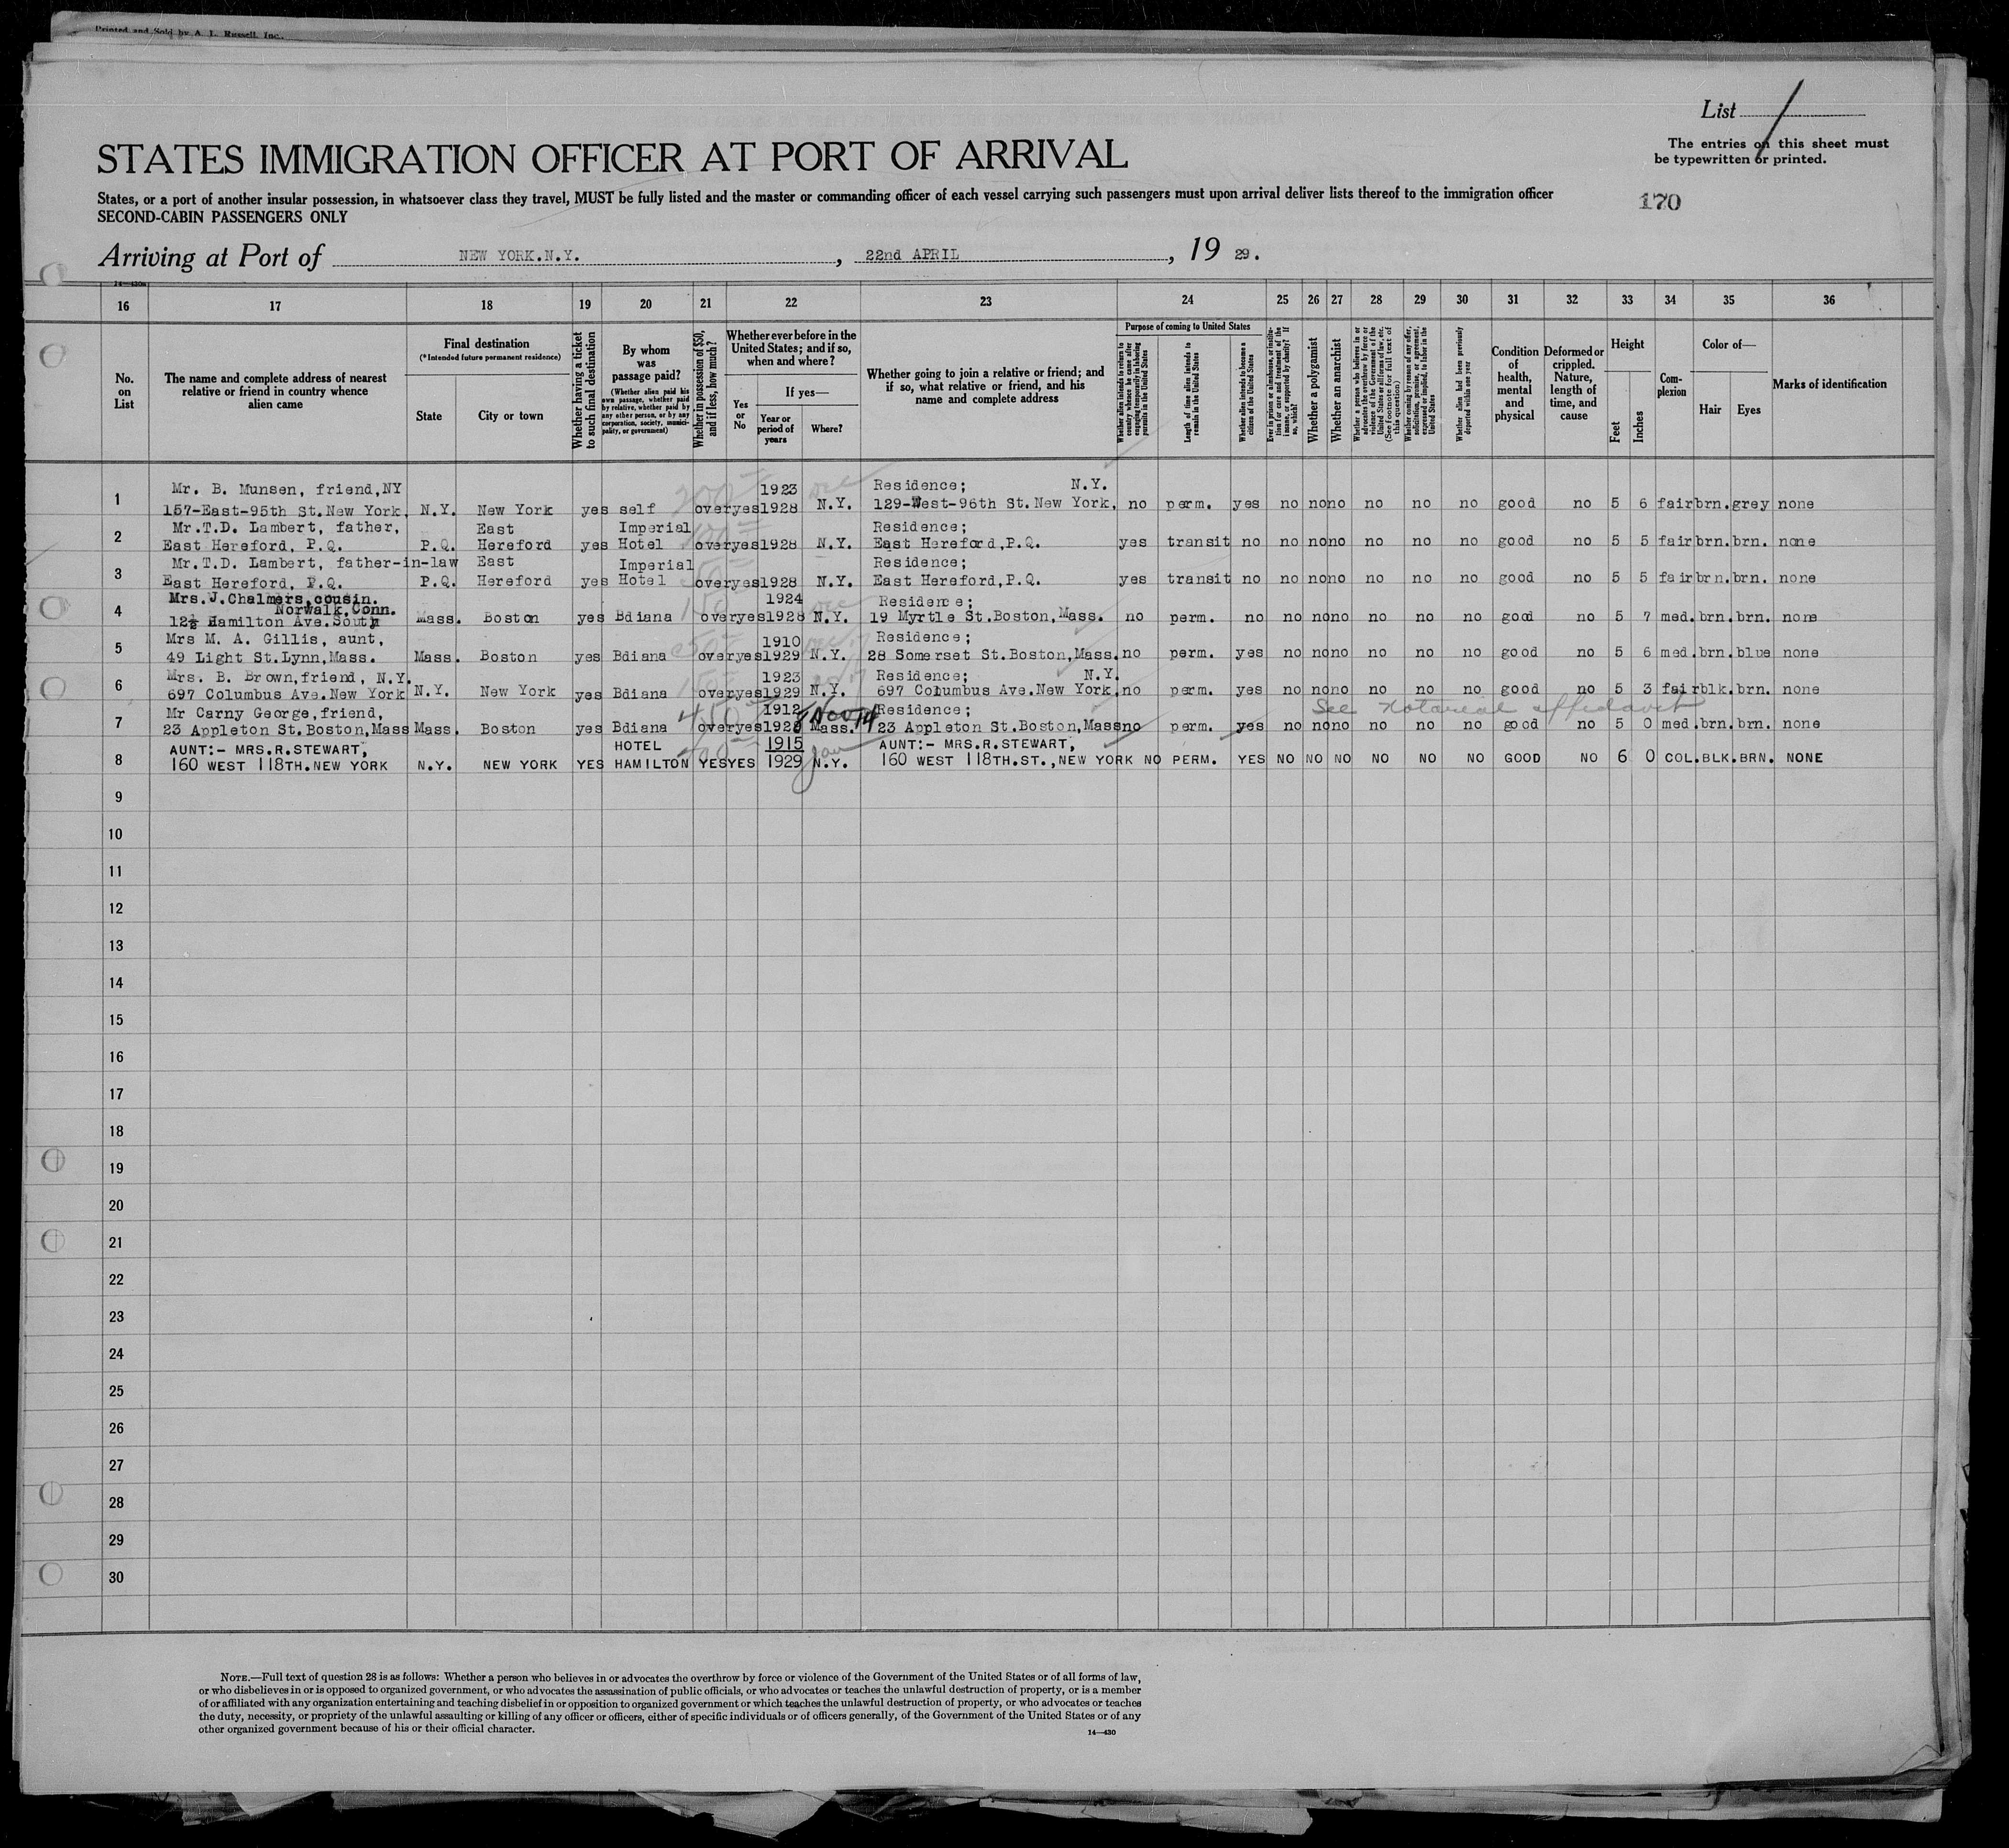 Printed and Sold by A. L. Russell, Inc.
List 1
The entries on this sheet must
be typewritten or printed.
STATES IMMIGRATION OFFICER AT PORT OF ARRIVAL
States, or a port of another insular possession, in whatsoever class they travel, MUST be fully listed and the master or commanding officer of each vessel carrying such passengers must upon arrival deliver lists thereof to the immigration officer
SECOND-CABIN PASSENGERS ONLY
170
Arriving at Port of NEW YORK.N.Y. , 22nd APRIL , 19 29.
16 17 18 19 20 21 22 23 24 25 26 27 28 29 30 31 32 33 34 35 36
No. on List
The name and complete address of nearest relative or friend in country whence alien came
Final destination
(*Intended future permanent residence)
State
City or town
Whether having a ticket to such final destination
By whom was passage paid?
(Whether alien paid his own passage, whether paid by relative, whether paid by any other person, or by any corporation, society, municipality, or government)
Whether in possession of $50, and if less, how much?
Whether ever before in the United States; and if so, when and where?
Yes or No
If yes—
Year or period of years
Where?
Whether going to join a relative or friend; and if so, what relative or friend, and his name and complete address
Purpose of coming to United States
Whether alien intends to return to country whence he came after engaging temporarily in laboring pursuits in the United States
Length of time alien intends to remain in the United States
Whether alien intends to become a citizen of the United States
Ever in prison or almshouse, or institution for care and treatment of the insane, or supported by charity? If so, which?
Whether a polygamist
Whether an anarchist
Whether a person who believes in or advocates the overthrow by force or violence of the Government of the United States or all forms of law, etc. (See footnote for full text of this question)
Whether coming by reason of any offer, solicitation, promise, or agreement, expressed or implied, to labor in the United States
Whether alien had been previously deported within one year
Condition of health, mental and physical
Deformed or crippled. Nature, length of time, and cause
Height
Feet
Inches
Complexion
Color of—
Hair
Eyes
Marks of identification
Mr. B. Munsen, friend,NY 1923 Residence; N.Y.
1 157-East-95th St.New York. N.Y. New York yes self over yes 1928 N.Y. 129-West-96th St.New York, no perm. yes no no no no no no good no 5 6 fair brn. grey none
Mr.T.D. Lambert, father, East Imperial Residence;
2 East Hereford, P.Q. P.Q. Hereford yes Hotel over yes 1928 N.Y. East Hereford,P.Q. yes transit no no no no no no no good no 5 5 fair brn. brn. none
Mr.T.D. Lambert, father-in-law East Imperial Residence;
3 East Hereford, P.Q. P.Q. Hereford yes Hotel over yes 1928 N.Y. East Hereford,P.Q. yes transit no no no no no no no good no 5 5 fair brn. brn. none
Mrs.J.Chalmers,cousin. 1924 Residence;
Norwalk.Conn.
4 12½ Hamilton Ave.South Mass. Boston yes Bdiana over yes 1928 N.Y. 19 Myrtle St.Boston,Mass. no perm. no no no no no no no good no 5 7 med. brn. brn. none
Mrs M. A. Gillis, aunt, 1910 Residence;
5 49 Light St.Lynn,Mass. Mass. Boston yes Bdiana over yes 1929 N.Y. 28 Somerset St.Boston,Mass. no perm. yes no no no no no no good no 5 6 med. brn. blue none
Mrs. B. Brown,friend, N.Y. 1923 Residence; N.Y.
6 697 Columbus Ave.New York N.Y. New York yes Bdiana over yes 1929 N.Y. 697 Columbus Ave.New York, no perm. yes no no no no no no good no 5 3 fair blk. brn. none
Mr Carny George,friend, 1912 Residence; See notarial affidavit
7 23 Appleton St.Boston,Mass Mass. Boston yes Bdiana over yes 1928 Mass. 23 Appleton St.Boston,Mass no perm. yes no no no no no no good no 5 0 med. brn. brn. none
AUNT:- MRS.R.STEWART, HOTEL 1915 AUNT:- MRS.R.STEWART,
8 160 WEST 118TH.NEW YORK N.Y. NEW YORK YES HAMILTON YES YES 1929 Jan N.Y. 160 WEST 118TH.ST.,NEW YORK NO PERM. YES NO NO NO NO NO NO GOOD NO 6 0 COL. BLK. BRN. NONE
9
10
11
12
13
14
15
16
17
18
19
20
21
22
23
24
25
26
27
28
29
30
NOTE.—Full text of question 28 is as follows: Whether a person who believes in or advocates the overthrow by force or violence of the Government of the United States or of all forms of law,
or who disbelieves in or is opposed to organized government, or who advocates the assassination of public officials, or who advocates or teaches the unlawful destruction of property, or is a member
of or affiliated with any organization entertaining and teaching disbelief in or opposition to organized government or which teaches the unlawful destruction of property, or who advocates or teaches
the duty, necessity, or propriety of the unlawful assaulting or killing of any officer or officers, either of specific individuals or of officers generally, of the Government of the United States or of any
other organized government because of his or their official character.
14—430